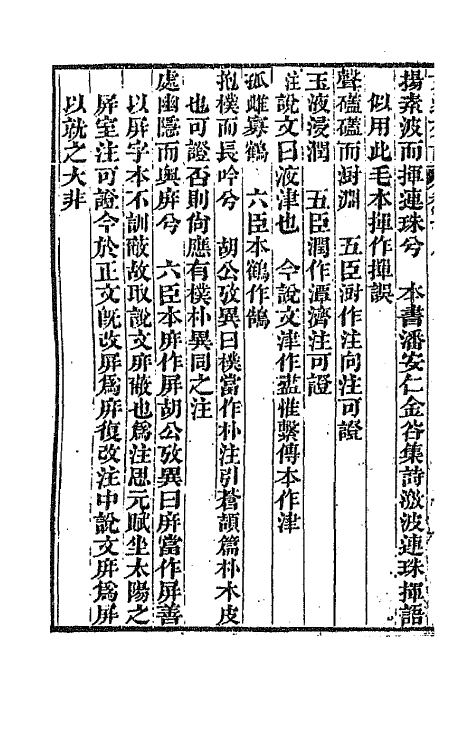 揚素波而揮連珠兮　本書潘安仁金谷集詩激波連珠揮語
似用此毛本揮作撣誤
聲礚礚而澍淵　五臣澍作注向注可證
玉液浸潤　五臣潤作潭濟注可證
注說文曰液津也　今說文津作盡惟繫傳本作津
孤雌寡鶴　六臣本鶴作鵠
抱樸而長吟兮　胡公攷異曰樸當作朴注引蒼頡篇朴木皮
也可證否則尙應有樸朴異同之注
處幽隱而奧屏兮　六臣本屏作屏胡公攷異曰屏當作屏善
以屏字本不訓蔽故取說文屏蔽也為注思元賦坐太陽之
屏室注可證今於正文旣改屏爲屏復改注中說文屏爲屏
以就之大非